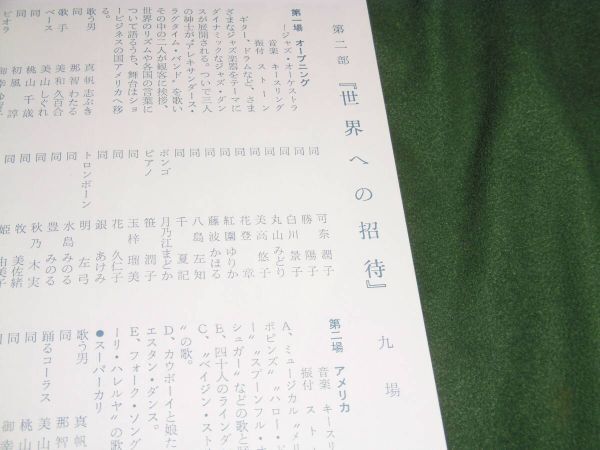 第二部 『世界への招待』 九場
第一場 オープニング
―ジャズ・オーケストラ
音楽 キースリング
振付 ストーン
ギター、ドラムなど、さま
ざまなジャズ楽器をテーマに
ダイナミックなジャズ・ダン
スが展開される。ついで三人
の紳士が〝アレキサンダース・
ラグタイム・バンド〟を歌い
その中の二人が観客に挨拶、
世界のリズムや各国の言葉に
ついて語るうち、舞台はショ
ービジネスの国アメリカへ移
る。
歌う男 真帆志ぶき
同 那智わたる
歌手 美和久百合
ベース 美山しぐれ
同 桃山千歳
同 初風諄
ビオラ
同 可奈潤子
同 勝陽子
同 白川景子
同 丸山みどり
同 美高悠子
同 花登章
同 紅園ゆりか
同 藤波かほる
同 八島左知
同 千夏記
ボンゴ 月乃江まどか
ピアノ 笹潤子
同 玉梓瑠美
同 花久仁子
同 銀あけみ
トロンボーン 明左弓
同 水島みのる
同 豊みのる
同 秋乃木実
同 牧美佐緒
同 姫由美子
第二場 アメリカ
音楽 キースリ
振付 スト
A、ミュージカル〝メリ
ポピンズ〟〝ハロー・ド
〝スプーンフル・オ
シュガー〟などの歌と踊
B、四十人のラインダ
C、〝ベイジン・スト
〟の歌。
D、カウボーイと娘た
エスタン・ダンス。
E、フォーク・ソング
ーリ・ハレルヤ〟の歌
●スーパーカリ
歌う男 真帆
同 那智
踊るコーラス 美山
同 桃山
同 御幸